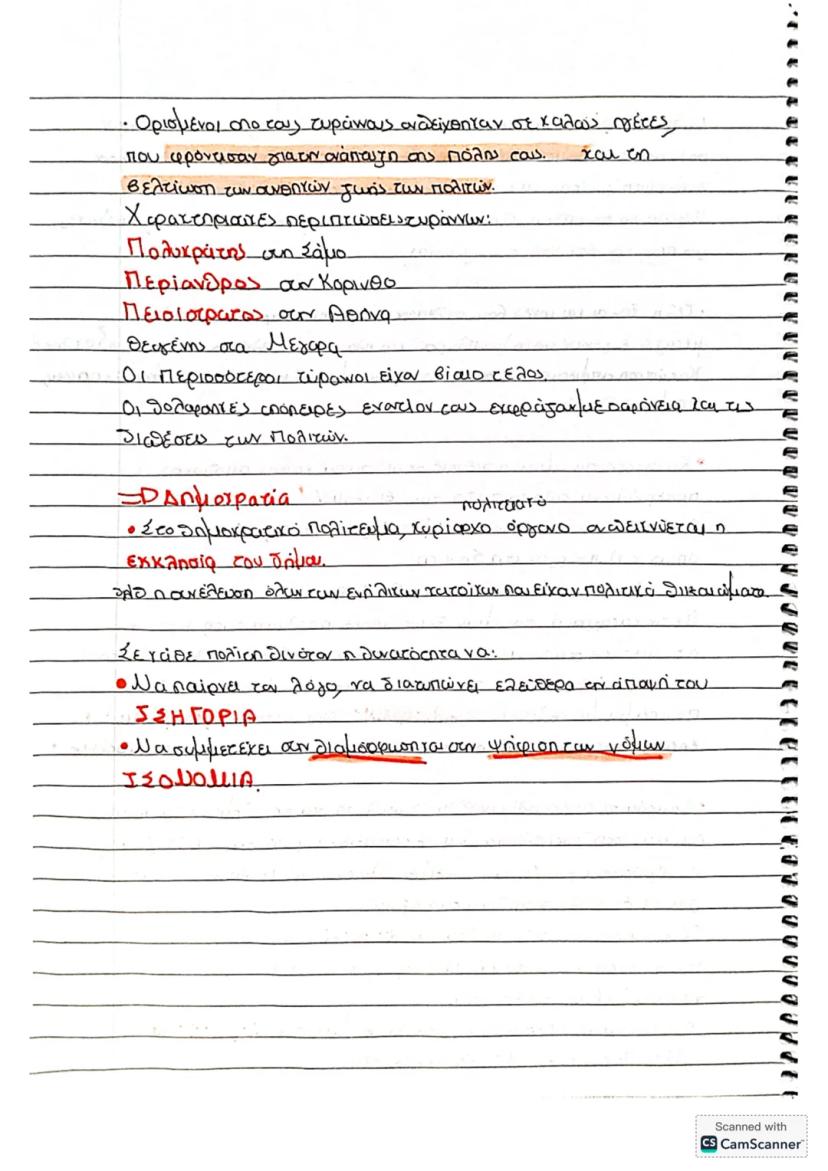 · Ορισμένοι απο τους τυράννους αναδείχθηκαν σε καλούς ηγέτες,
που φρόντισαν για την ανάπτυξη της πόλης τους. και τη
βελτίωση των συνθηκών ζωής των πολιτών.
Χαρακτηριστικές περιπτώσεις τυράννων:
Πολυκράτης στη Σάμο
Περίανδρος στην Κορινθο
Πεισίστρατος στην Αθήνα
Θεαγένης στα Μέγαρα
Οι Περισσότεροι τύραννοι είχαν βίαιο τέλος.
Οι δολοφονικές απόπειρες εναντίον τους εκφράζαν με σαφήνεια και τις
διαθέσεις των Πολιτών.
=D Δημοκρατία
πολιτειακό
• Στο δημοκρατικό πολίτευμα, κυρίαρχο όργανο αναδεικνύεται η
εκκλησία του δήμου.
η συνέλευση όλων των ενήλικων κατοίκων που είχαν πολιτικά δικαιώματα
Σε κάθε πολίτη δινόταν η δυνατότητα να:
• Να παίρνει τον λόγο, να διατυπώνει ελεύθερα την άποψή του
ΙΣΗΓΟΡΙΑ
• Να συμμετέχει στην και στην ψήφιση των νόμων
ΙΣΟΝΟΜΙΑ.
Scanned with
CS CamScanner